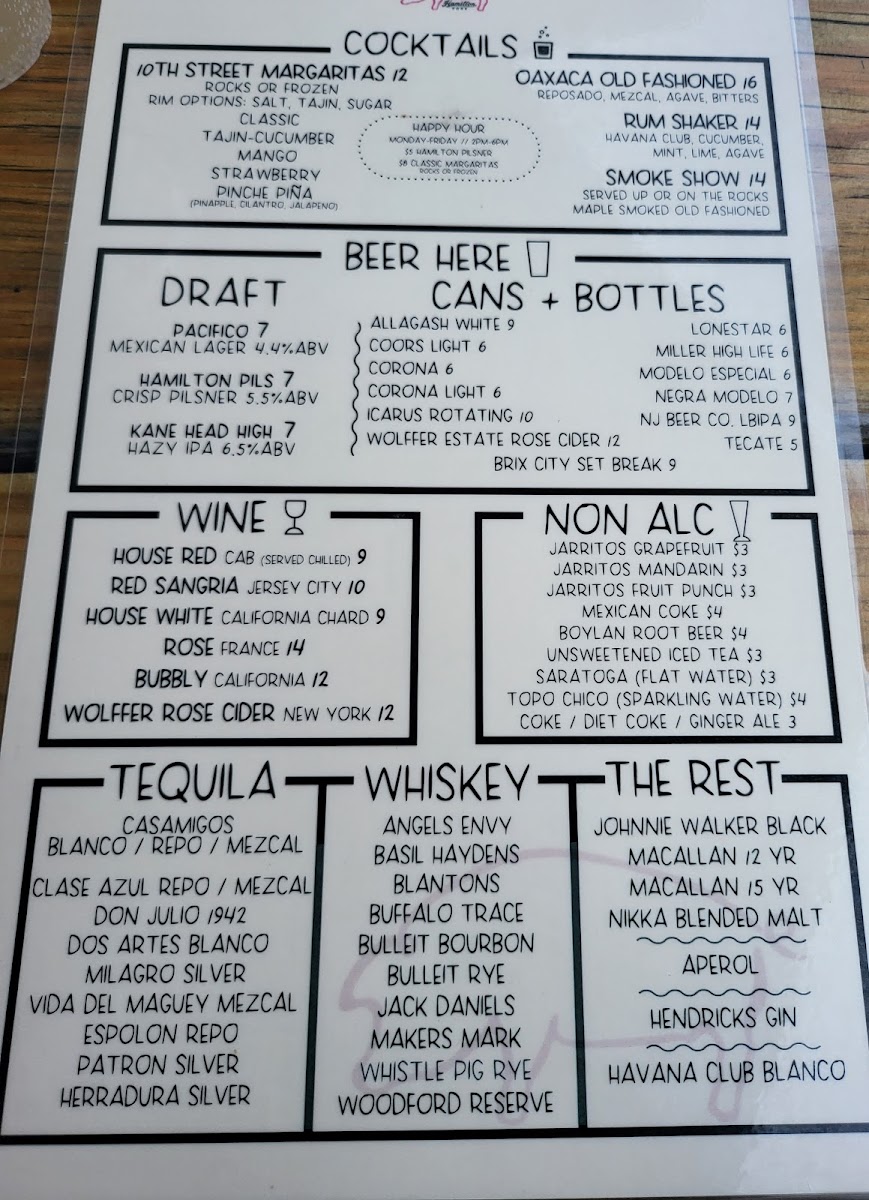 Hamilton
COCKTAILS
10TH STREET MARGARITAS 12
ROCKS OR FROZEN
RIM OPTIONS: SALT, TAJIN, SUGAR
CLASSIC
TAJIN-CUCUMBER
MANGO
STRAWBERRY
PINCHE PIÑA
(PINEAPPLE, CILANTRO, JALAPENO)
HAPPY HOUR
MONDAY-FRIDAY // 2PM-6PM
$5 HAMILTON PILSNER
$8 CLASSIC MARGARITAS
ROCKS OR FROZEN
OAXACA OLD FASHIONED 16
REPOSADO, MEZCAL, AGAVE, BITTERS
RUM SHAKER 14
HAVANA CLUB, CUCUMBER,
MINT, LIME, AGAVE
SMOKE SHOW 14
SERVED UP OR ON THE ROCKS
MAPLE SMOKED OLD FASHIONED
BEER HERE
DRAFT
PACIFICO 7
MEXICAN LAGER 4.4%ABV
HAMILTON PILS 7
CRISP PILSNER 5.5%ABV
KANE HEAD HIGH 7
HAZY IPA 6.5%ABV
CANS + BOTTLES
ALLAGASH WHITE 9
COORS LIGHT 6
CORONA 6
CORONA LIGHT 6
ICARUS ROTATING 10
WOLFFER ESTATE ROSE CIDER 12
LONESTAR 6
MILLER HIGH LIFE 6
MODELO ESPECIAL 6
NEGRA MODELO 7
NJ BEER CO. LBIPA 9
TECATE 5
BRIX CITY SET BREAK 9
WINE
HOUSE RED CAB (SERVED CHILLED) 9
RED SANGRIA JERSEY CITY 10
HOUSE WHITE CALIFORNIA CHARD 9
ROSE FRANCE 14
BUBBLY CALIFORNIA 12
WOLFFER ROSE CIDER NEW YORK 12
NON ALC
JARRITOS GRAPEFRUIT $3
JARRITOS MANDARIN $3
JARRITOS FRUIT PUNCH $3
MEXICAN COKE $4
BOYLAN ROOT BEER $4
UNSWEETENED ICED TEA $3
SARATOGA (FLAT WATER) $3
TOPO CHICO (SPARKLING WATER) $4
COKE / DIET COKE / GINGER ALE 3
TEQUILA
CASAMIGOS
BLANCO / REPO / MEZCAL
CLASE AZUL REPO / MEZCAL
DON JULIO 1942
DOS ARTES BLANCO
MILAGRO SILVER
VIDA DEL MAGUEY MEZCAL
ESPOLON REPO
PATRON SILVER
HERRADURA SILVER
WHISKEY
ANGELS ENVY
BASIL HAYDENS
BLANTONS
BUFFALO TRACE
BULLEIT BOURBON
BULLEIT RYE
JACK DANIELS
MAKERS MARK
WHISTLE PIG RYE
WOODFORD RESERVE
THE REST
JOHNNIE WALKER BLACK
MACALLAN 12 YR
MACALLAN 15 YR
NIKKA BLENDED MALT
APEROL
HENDRICKS GIN
HAVANA CLUB BLANCO